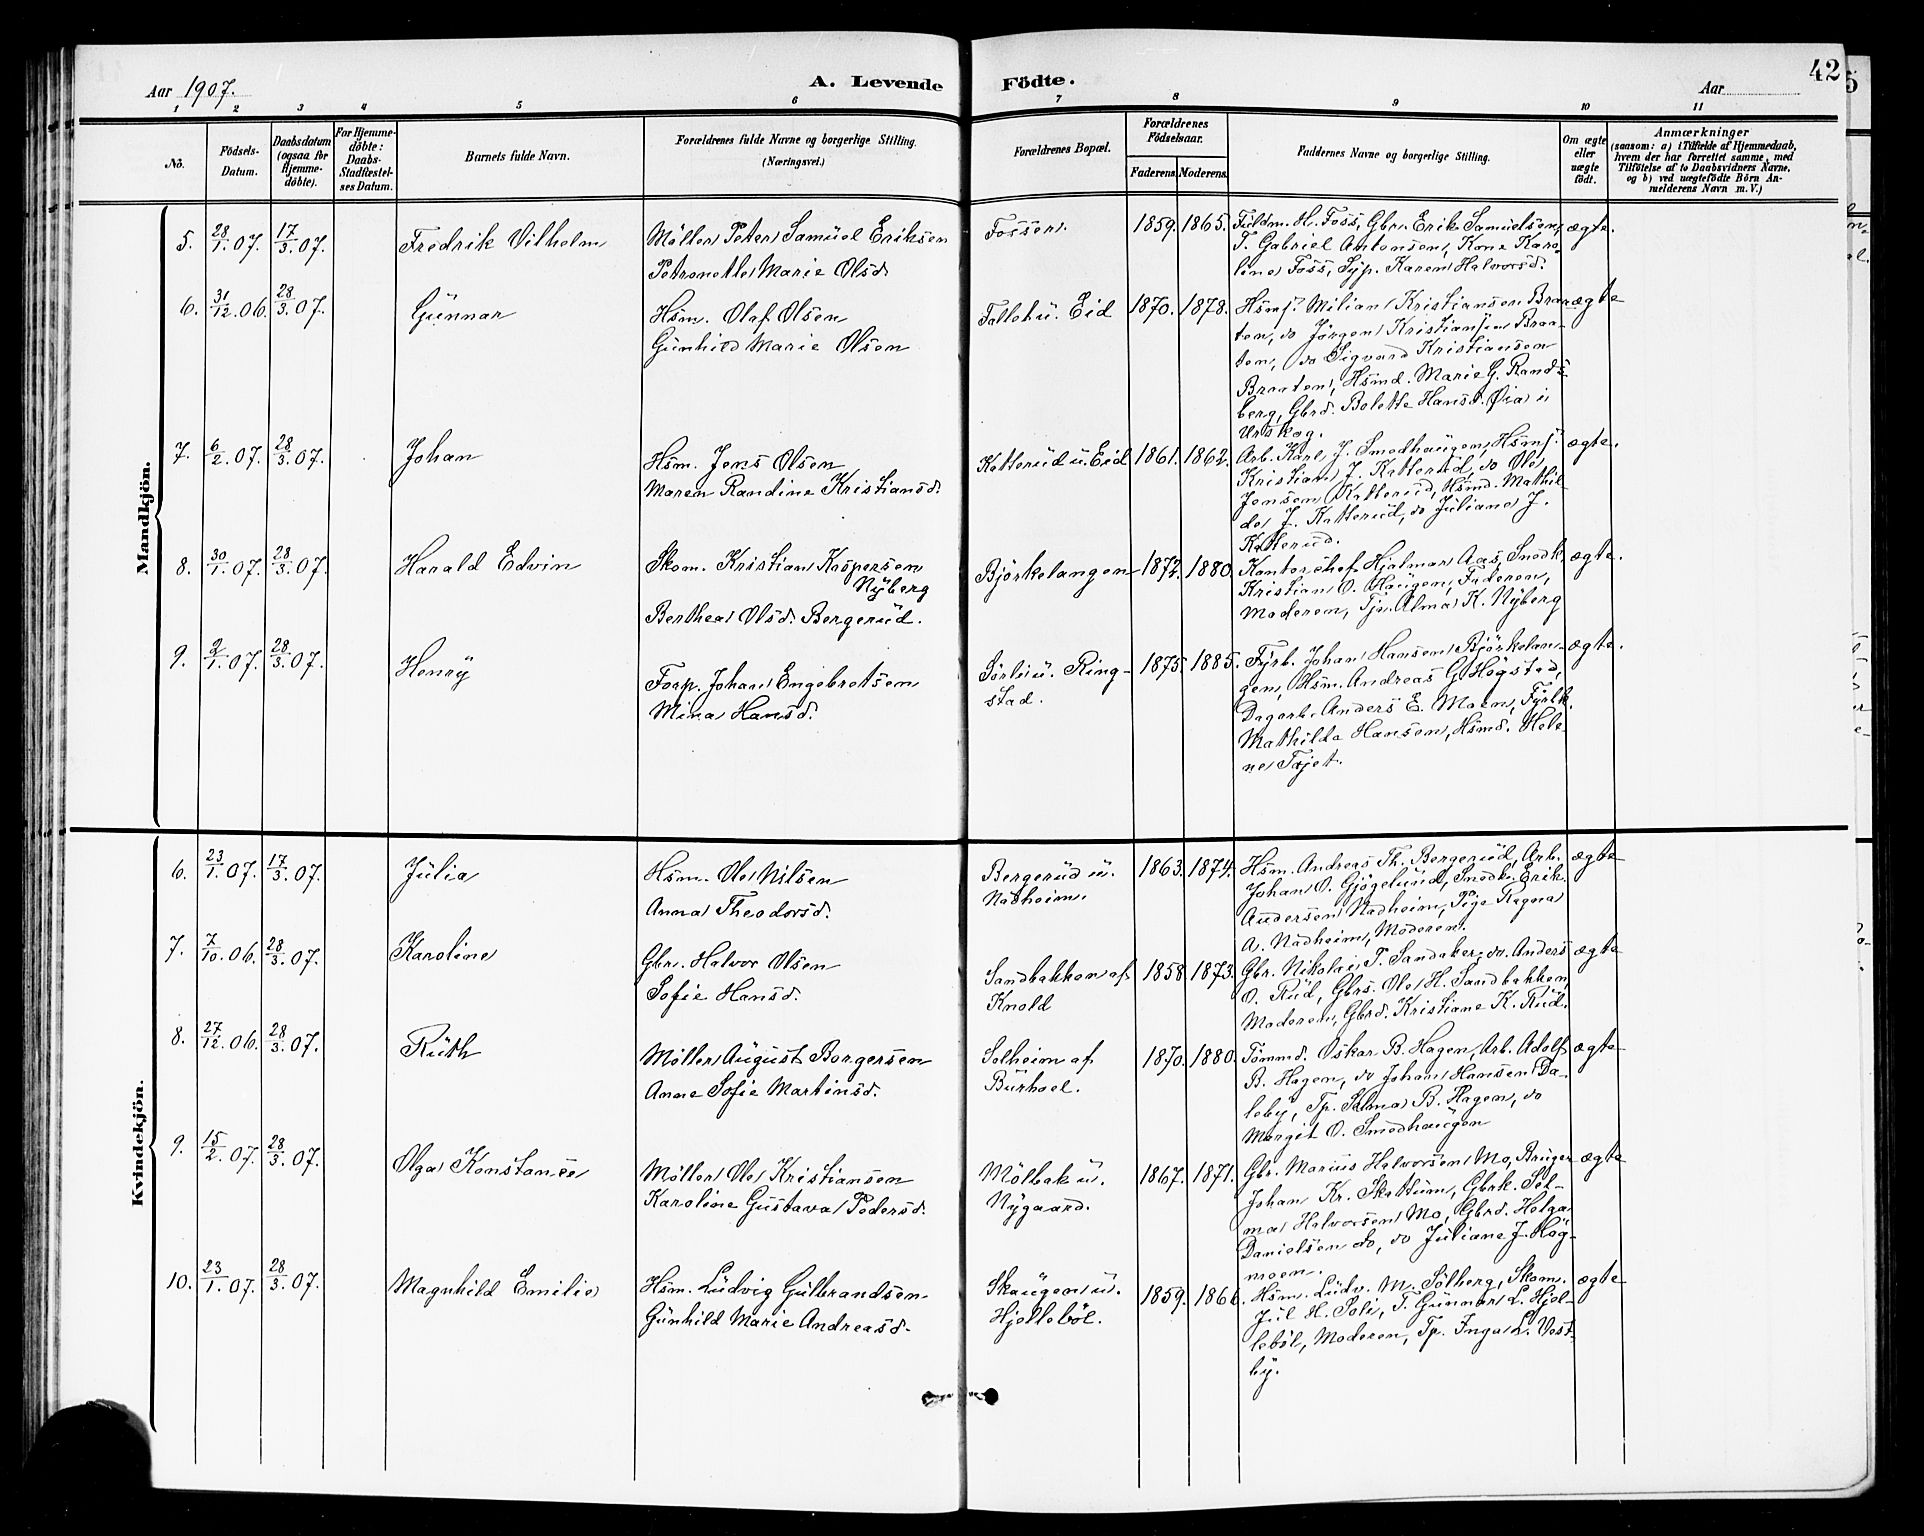 42
Aar 1907.
A. Levende Födte.
Aar
1 2 3 4 5 6 7 8 9 10 11
No.
Födsels-Datum.
Daabsdatum (ogsaa for Hjemmedöbte).
For Hjemmedöbte: Daabs-Stadfæstelses Datum.
Barnets fulde Navn.
Forældrenes fulde Navne og borgerlige Stilling.
(Næringsvei.)
Forældrenes Bopæl.
Forældrenes Födselsaar.
Faderens. Moderens.
Faddernes Navne og borgerlige Stilling.
Om ægte eller uægte födt.
Anmærkninger
(saasom: a) i Tilfælde af Hjemmedaab,
hvem der har forrettet samme, med
Tilföielse af to Daabsvidners Navne,
og b) ved uægtefödte Börn An-
melderens Navn m. V.)
Mandkjön.
5. 28/1.07. 17/3.07. Fredrik Vilhelm
Möller Peter Samuel Eriksen
Petronelle Marie Olsd.
Fosser. 1859. 1865.
Fuldm. H. Foss, Gbr. Erik Samuelsen,
T. Gabriel Antonsen, Kone Karo-
line Foss, Syp. Karen Halvorsd.
ægte.
6. 31/12.06. 28/3.07. Gunnar
Hsm. Olaf Olsen
Gunhild Marie Olsen
Tolleh u. Eid 1870. 1878.
Hsmf. Milian Kristiansen Braa-
ten, do Jörgen Kristiansen Braa-
ten, do Sigvard Kristiansen
Braaten, Hsmd. Marie G. Rands-
berg, Gbrd. Bolette Hansd. Öia i
Urskog.
ægte
7. 6/2.07. 28/3.07. Johan
Hsm. Jens Olsen
Maren Randine Kristiansd.
Katterud u. Eid 1861. 1862.
Arb. Karl J. Smedhaugen, Hsmf.
Kristian J. Katterud, do Ole
Jensen Katterud, Hsmd. Mathil-
de J. Katterud, do Juliane J.
Katterud.
ægte.
8. 30/1.07. 28/3.07. Harald Edvin
Skom. Kristian Kaspersen
Nyberg
Berthea Olsd. Bergerud.
Björkelangen 1872. 1880.
Kontorchef Hjalmar Aas, Snedk.
Kristian O. Haugen, Faderen,
Moderen, Tj. Alma K. Nyberg
ægte.
9. 2/1.07. 28/3.07. Henry
Forp. Johan Engebretsen
Mina Hansd.
Sörli u. Ring-
stad. 1875. 1885.
Fyrb. Johan Hansen Björkelan-
gen, Hsm. Andreas G. Högsted,
Dagarb. Anders E. Moen, Fyrbk.
Mathilda Hansen, Hsmd. Hele-
ne Tojet.
ægte.
Kvindekjön.
6. 23/1.07. 17/3.07. Julia
Hsm. Ole Nilsen
Anna Theodorsd.
Bergerud u.
Nadheim. 1863. 1874.
Hsm. Andreas Th. Bergerud, Arb.
Johan O. Gjögelund, Snedk. Erik
Andersen Nadheim, Pige Ragna
A. Nadheim, Moderen.
ægte
7. 7/10.06. 28/3.07. Karoline
Gbr. Halvor Olsen
Sofie Hansd.
Sandbakken af
Knold 1858 1873.
Gbr. Nikolai T. Sandaker, do. Anders
O. Rud, Gbrs. Ole H. Sandbakken,
Moderen, Gbrd. Kristiane K. Rud.
ægte
8. 27/12.06. 28/3.07. Ruth
Möller August Borgersen
Anne Sofie Martinsd.
Solheim af
Burhoel. 1870. 1880.
Tömmd. Oskar B. Hagen, Arb. Adolf
B. Hagen, do Johan Hansen Da-
leby, Tp. Selma B. Hagen, do
Margit O. Smedhaugen
ægte
9. 15/2.07. 28/3.07. Olga Konstance
Möller Ole Kristiansen
Karoline Gustava Pedersd.
Mölbak u.
Nygaard. 1867. 1871.
Gbr. Marius Halvorsen Mo, Bruger
Johan Kr. Skattum, Gbrk. Sel-
ma Halvorsen Mo, Gbrd. Helga
Danielsen do, do Juliane J. Hög-
moen.
ægte
10. 23/1.07. 28/3.07. Magnhild Emilie
Hsm. Ludvig Gulbrandsen
Gunhild Marie Andreasd.
Skaugen u.
Hjelleböl. 1859. 1866.
Hsm. Ludv. M. Solberg, Skom.
Jul H. Soli, T. Gunnar L. Hjel-
leböl, Moderen, Tp. Inga L. Vest-
by.
ægte